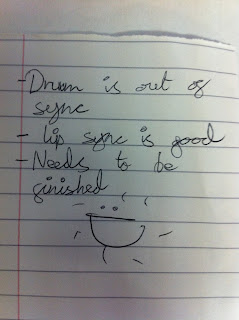 - Drum is out of
sync
- Lip sync is good
- Needs to be
finished